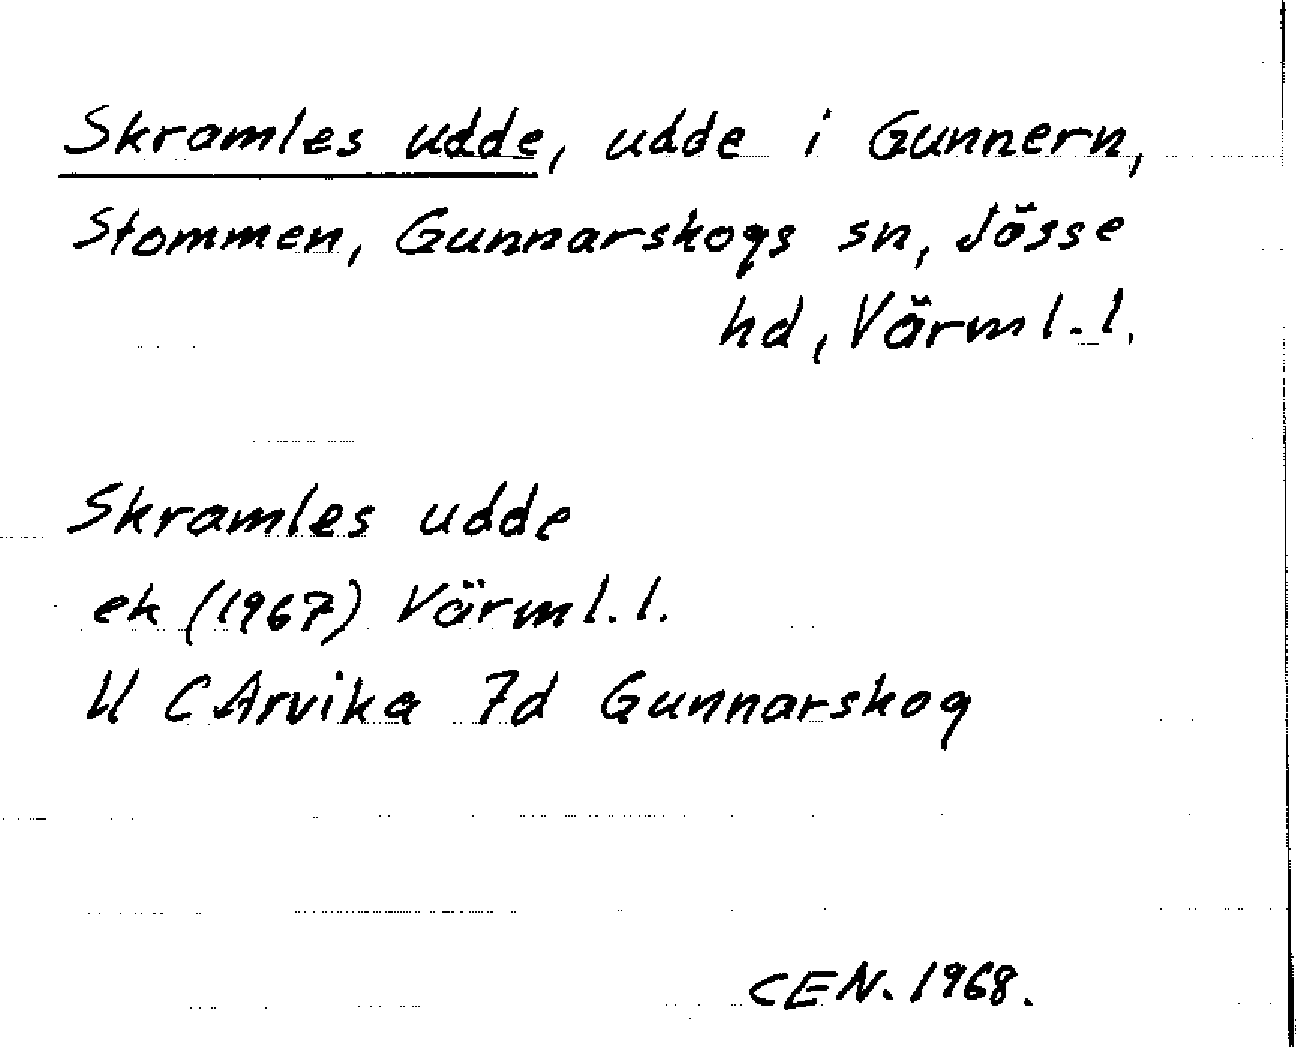 Skramles udde, udde i Gunnern,
Stommen, Gunnarskogs sn, Jösse
hd, Värml. l.
Skramles udde
ek (1967) Värml. l.
11 C Arvika 7d Gunnarskog
CEN. 1968.